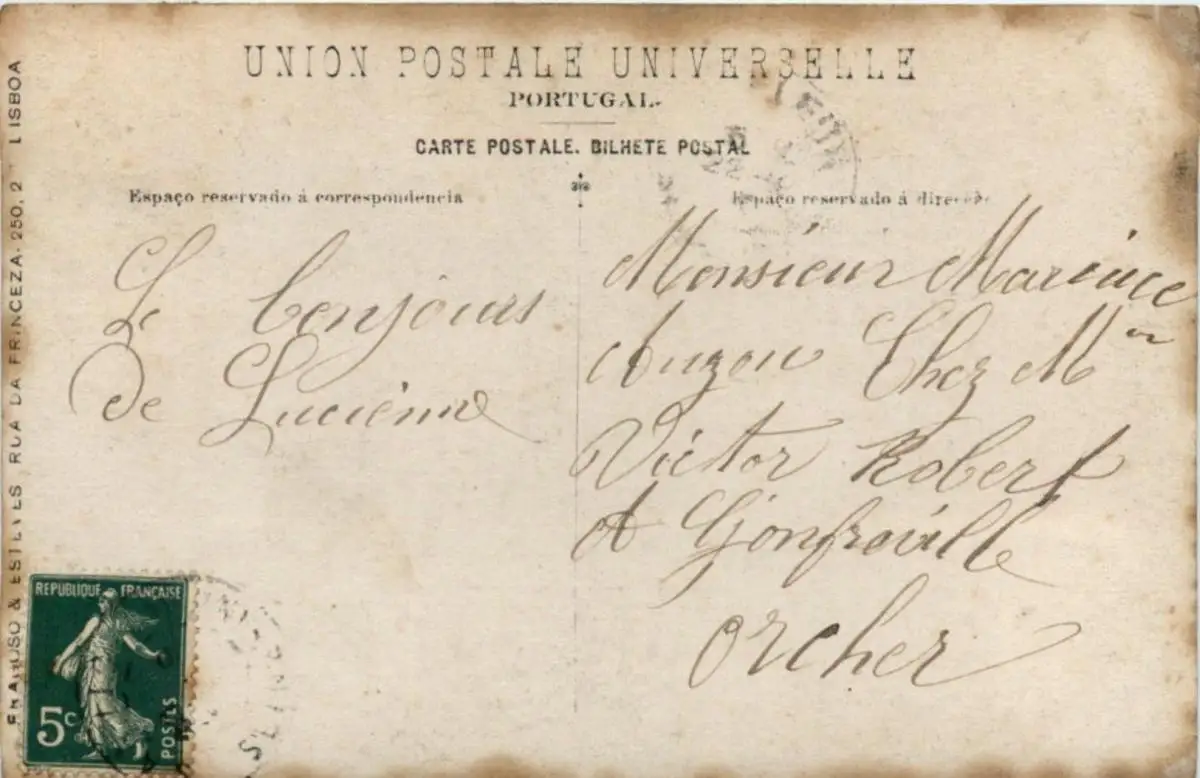 UNION POSTALE UNIVERSELLE
PORTUGAL.
CARTE POSTALE. BILHETE POSTAL
Espaço reservado á correspondencia
Espaço reservado á direcção
Le bonjours
de Lucienne
Monsieur Maurice
Auzou Chez Mr
Victor Robert
A Gonfreville
Orcher
& ESTEVES RUA DA PRINCEZA. 250, 2 LISBOA
REPUBLIQUE FRANÇAISE
5c
POSTES